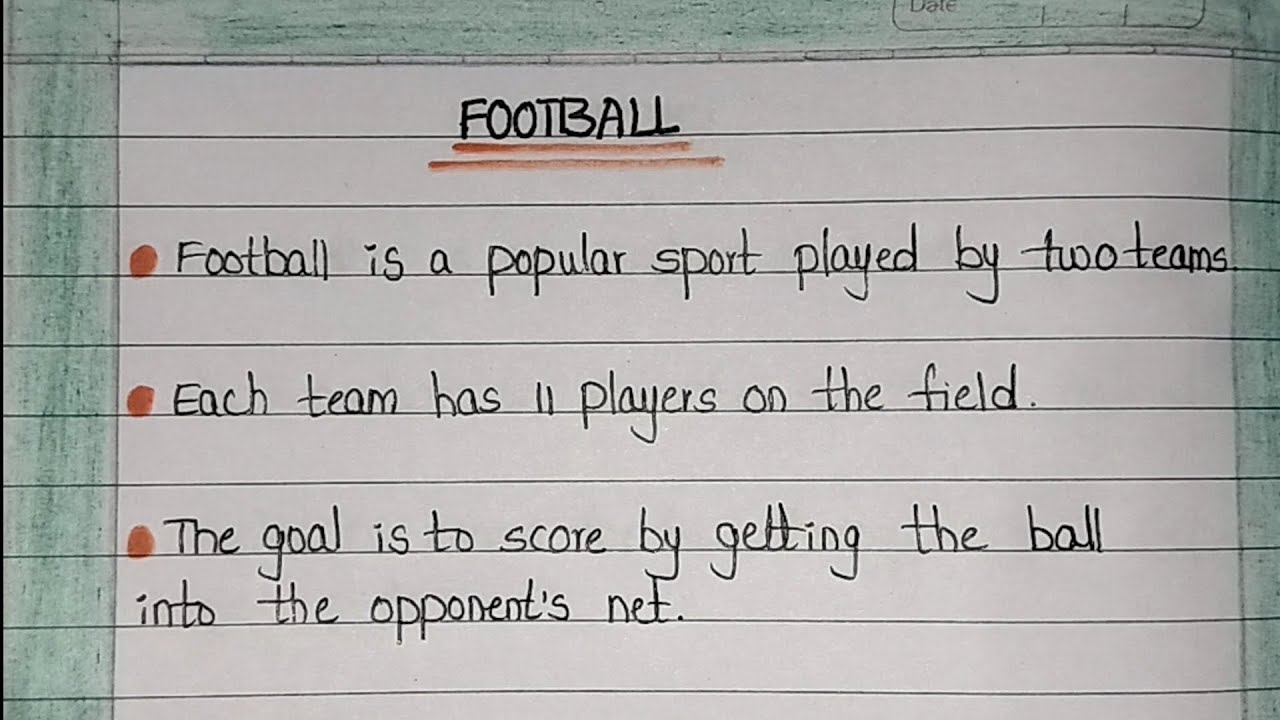 Date
FOOTBALL
• Football is a popular sport played by two teams.
• Each team has 11 players on the field.
• The goal is to score by getting the ball
into the opponent's net.